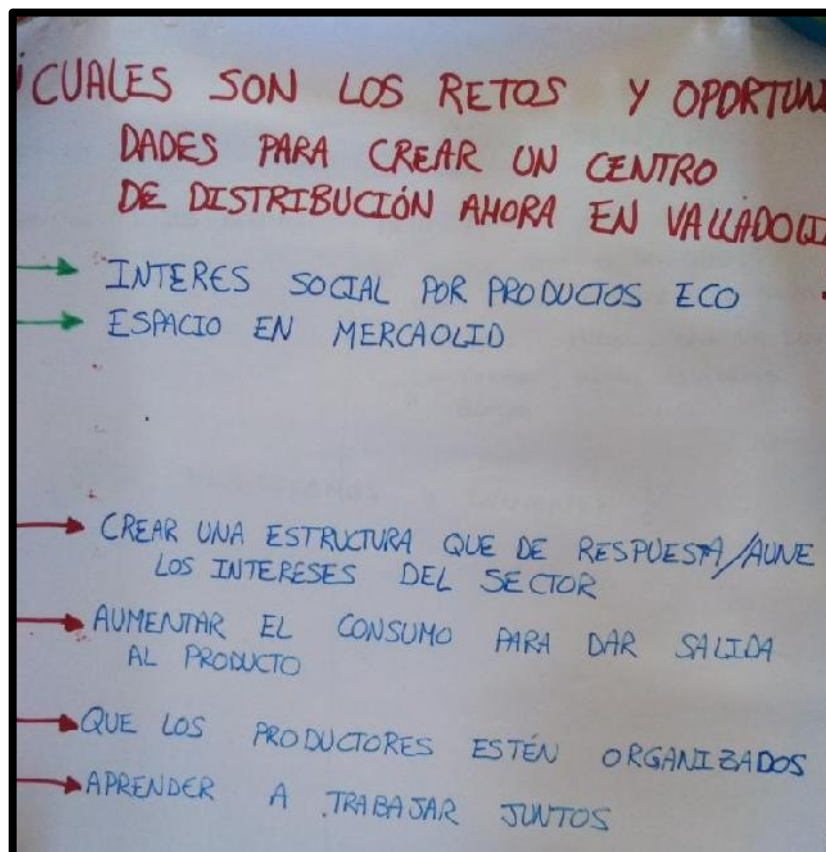 ¿CUALES SON LOS RETOS Y OPORTUNI
DADES PARA CREAR UN CENTRO
DE DISTRIBUCIÓN AHORA EN VALLADOLID
INTERES SOCIAL POR PRODUCTOS ECO
ESPACIO EN MERCAOLID
CREAR UNA ESTRUCTURA QUE DE RESPUESTA/AUNE
LOS INTERESES DEL SECTOR
AUMENTAR EL CONSUMO PARA DAR SALIDA
AL PRODUCTO
QUE LOS PRODUCTORES ESTÉN ORGANIZADOS
APRENDER A TRABAJAR JUNTOS